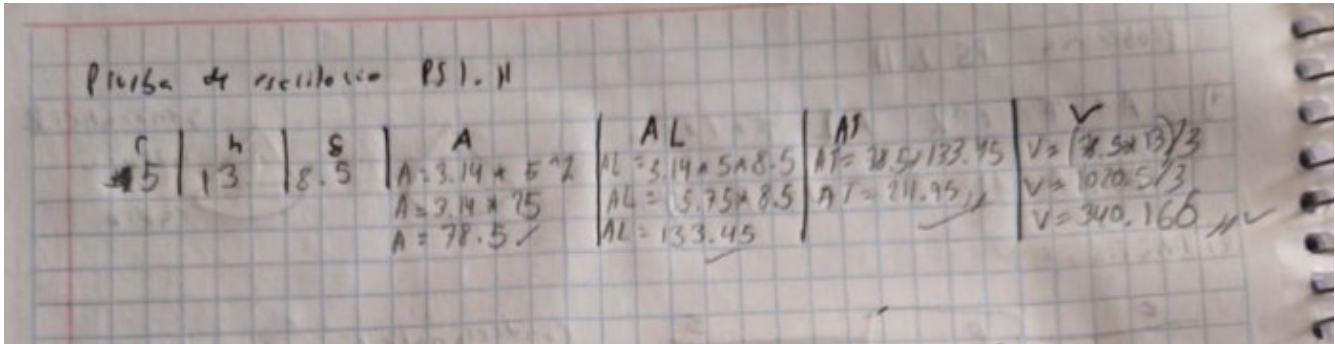 Prueba de escritorio PS1.11
r | h | g | A | AL | AT | V
5 | 13 | 8.5 | A=3.14 * 5^2 | AL=3.14*5*8.5 | AT=78.5+133.45 | V=(78.5*13)/3
A=3.14*25 | AL=15.75*8.5 | AT=211.95 | V=1020.5/3
A=78.5 | AL=133.45 | V=340.166